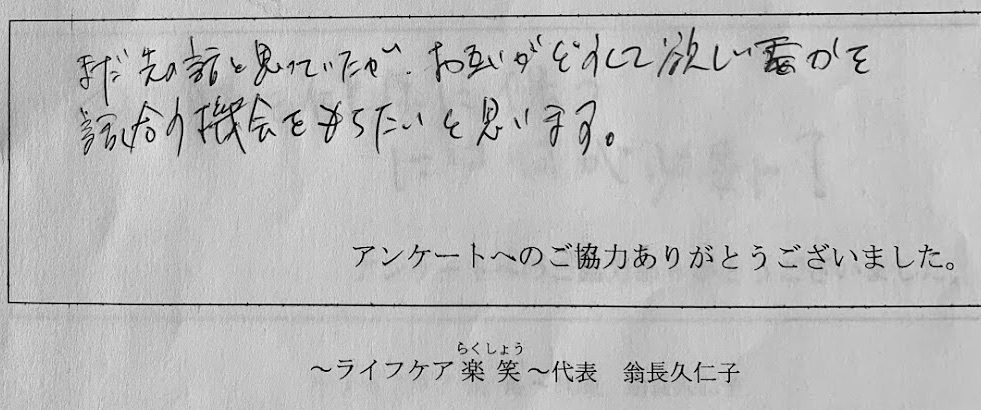 まだ先の話と思っていたが、お互いがどうして欲しいかを
話合う機会をもちたいと思います。
アンケートへのご協力ありがとうございました。
らくしょう
～ライフケア楽笑～代表　翁長久仁子